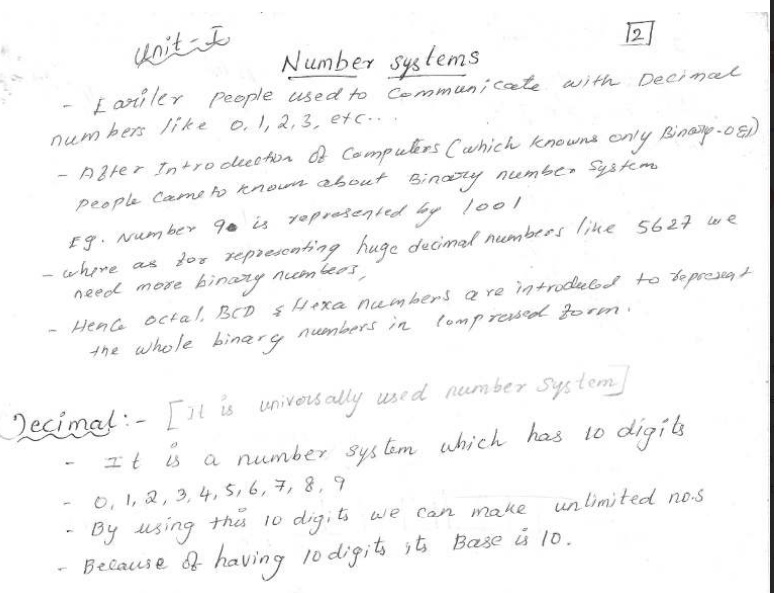 Unit - I
2
Number systems
- Eariler people used to communicate with Decimal
numbers like 0, 1, 2, 3, etc...
- After Introduction of Computers (which knowns only Binary - 0 & 1)
people came to known about Binary number System
Eg. Number 9 is represented by 1001
- where as for representing huge decimal numbers like 5627 we
need more binary numbers,
- Hence octal, BCD & Hexa numbers are introduced to represent
the whole binary numbers in Compressed form.
Decimal :- [It is universally used number system]
- It is a number system which has 10 digits
- 0, 1, 2, 3, 4, 5, 6, 7, 8, 9
- By using this 10 digits we can make unlimited no.s
- Because of having 10 digits its Base is 10.